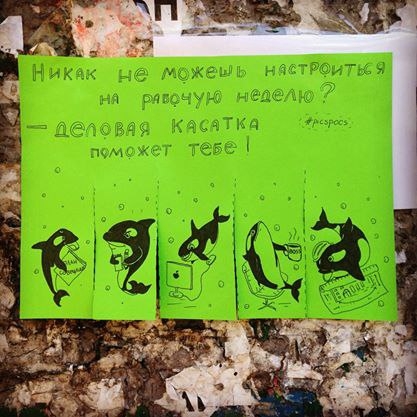 Никак не можешь настроиться
на рабочую неделю?
— деловая касатка
#picspocs
поможет тебе!
план